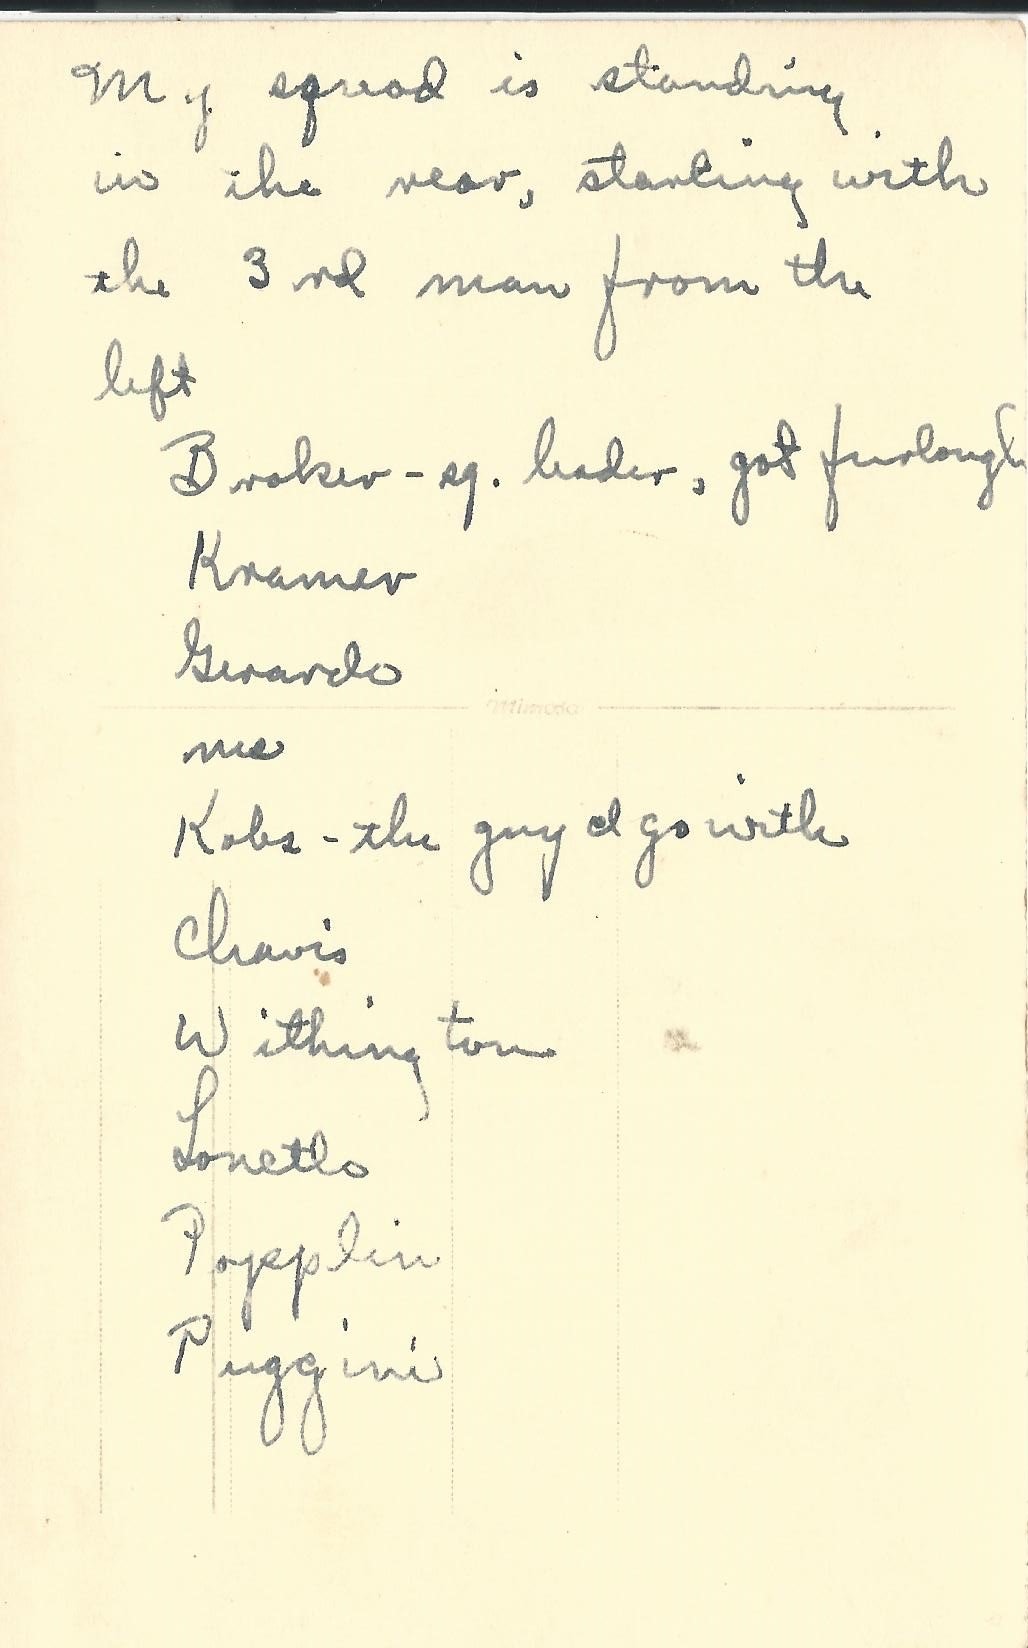 My squad is standing
in the rear, starting with
the 3rd man from the
left
Broker - sq. leader, got furlough
Kramer
Gerardo
Mimosa
me
Kobs - the guy I go with
Chavis
Withington
Lonetto
Popplin
Puggini